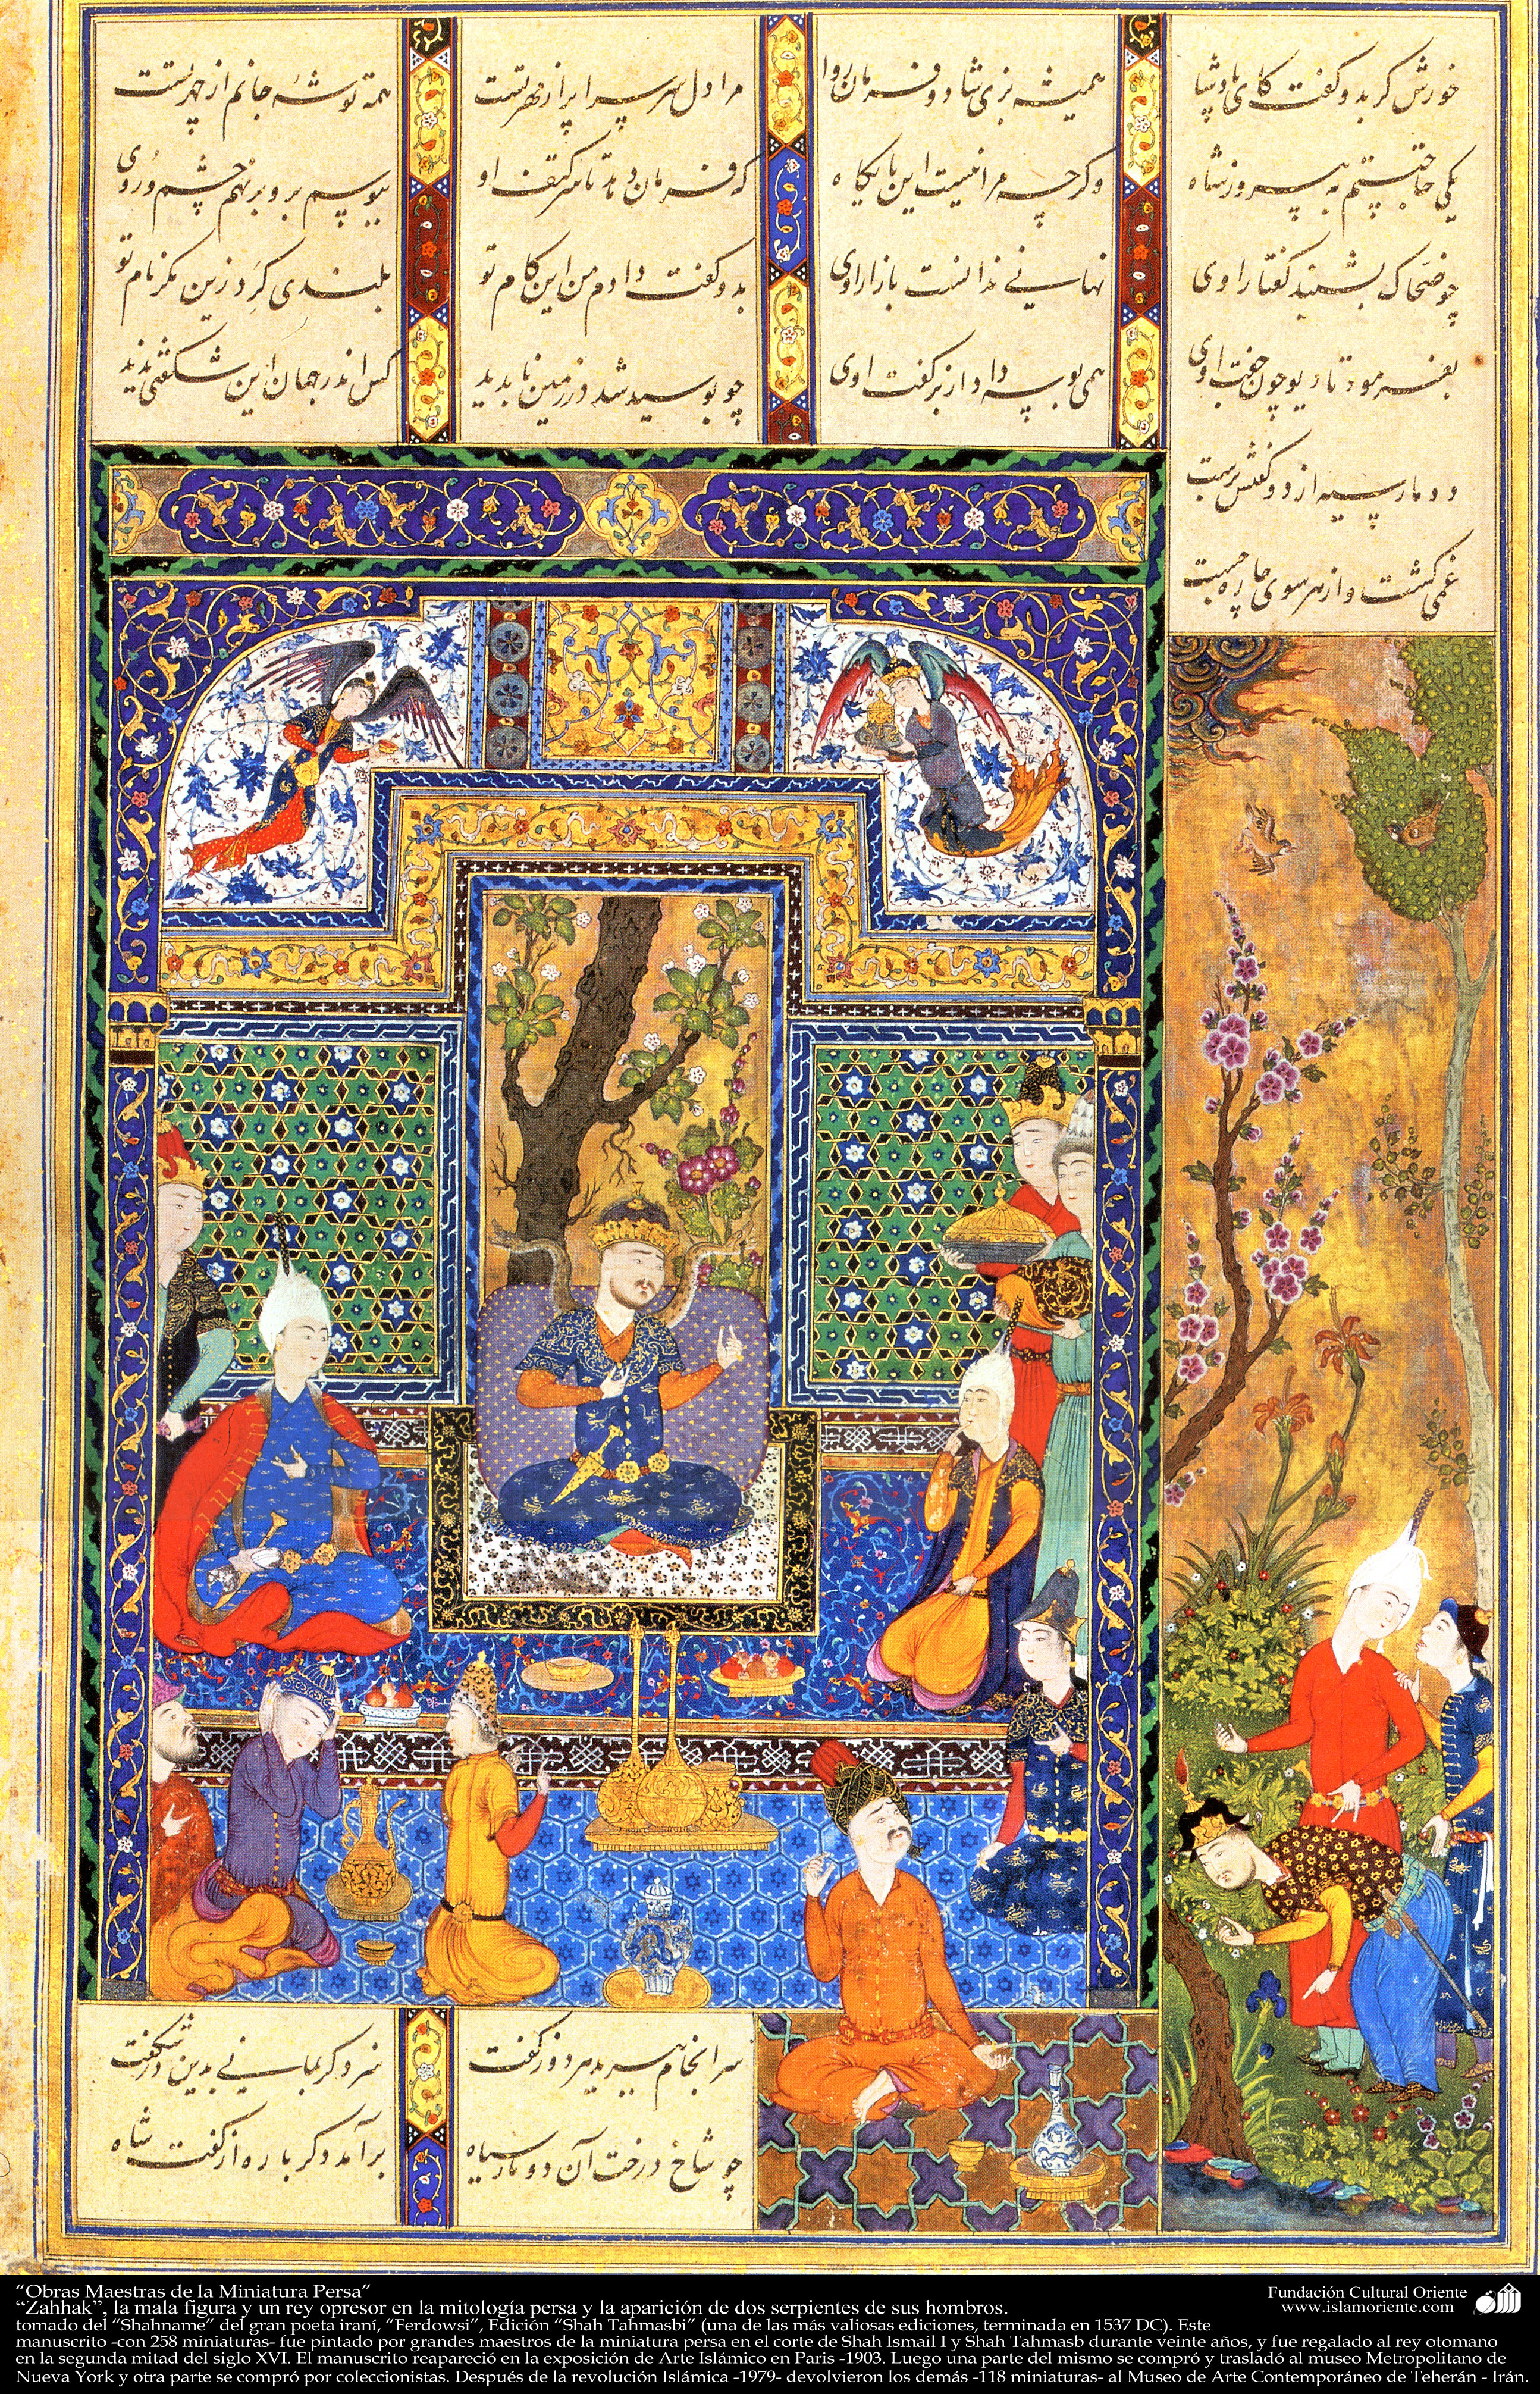 خورش گر بدو گفت کای پادشا همیشه بزی شاد و فرمان روا
مرا دل سراسر پر از مهر تست همه توشهٔ جانم از چهر تست
یکی حاجتستم به پیروز شاه وگرچه مرا نیست این پایگاه
که فرمان دهد تا سر کتف اوی ببوسم برو بر نهم چشم و روی
چو ضحاک بشنید گفتار اوی نهانی ندانست بازار اوی
بدو گفت دادم من این کام تو بلندی گرد زین مگر نام تو
بفرمود تا دیو چون جفت اوی همی بوسه داد از بر کفت اوی
چو بوسید شد در زمین ناپدید کس اندر جهان این شگفتی ندید
دو مار سیه از دو کتفش برست
غمی گشت و از هر سوی چاره جست
سرانجام ببرید هر دو ز کفت سزد گر بمانی بدین در شگفت
چو شاخ درخت آن دو مار سیاه برآمد دگرباره از کفت شاه
“Obras Maestras de la Miniatura Persa”
“Zahhak”, la mala figura y un rey opresor en la mitología persa y la aparición de dos serpientes de sus hombros.
tomado del “Shahname” del gran poeta iraní, “Ferdowsi”, Edición “Shah Tahmasbi” (una de las más valiosas ediciones, terminada en 1537 DC). Este
manuscrito -con 258 miniaturas- fue pintado por grandes maestros de la miniatura persa en el corte de Shah Ismail I y Shah Tahmasb durante veinte años, y fue regalado al rey otomano
en la segunda mitad del siglo XVI. El manuscrito reapareció en la exposición de Arte Islámico en Paris -1903. Luego una parte del mismo se compró y trasladó al museo Metropolitano de
Nueva York y otra parte se compró por coleccionistas. Después de la revolución Islámica -1979- devolvieron los demás -118 miniaturas- al Museo de Arte Contemporáneo de Teherán - Irán
Fundación Cultural Oriente
www.islamoriente.com